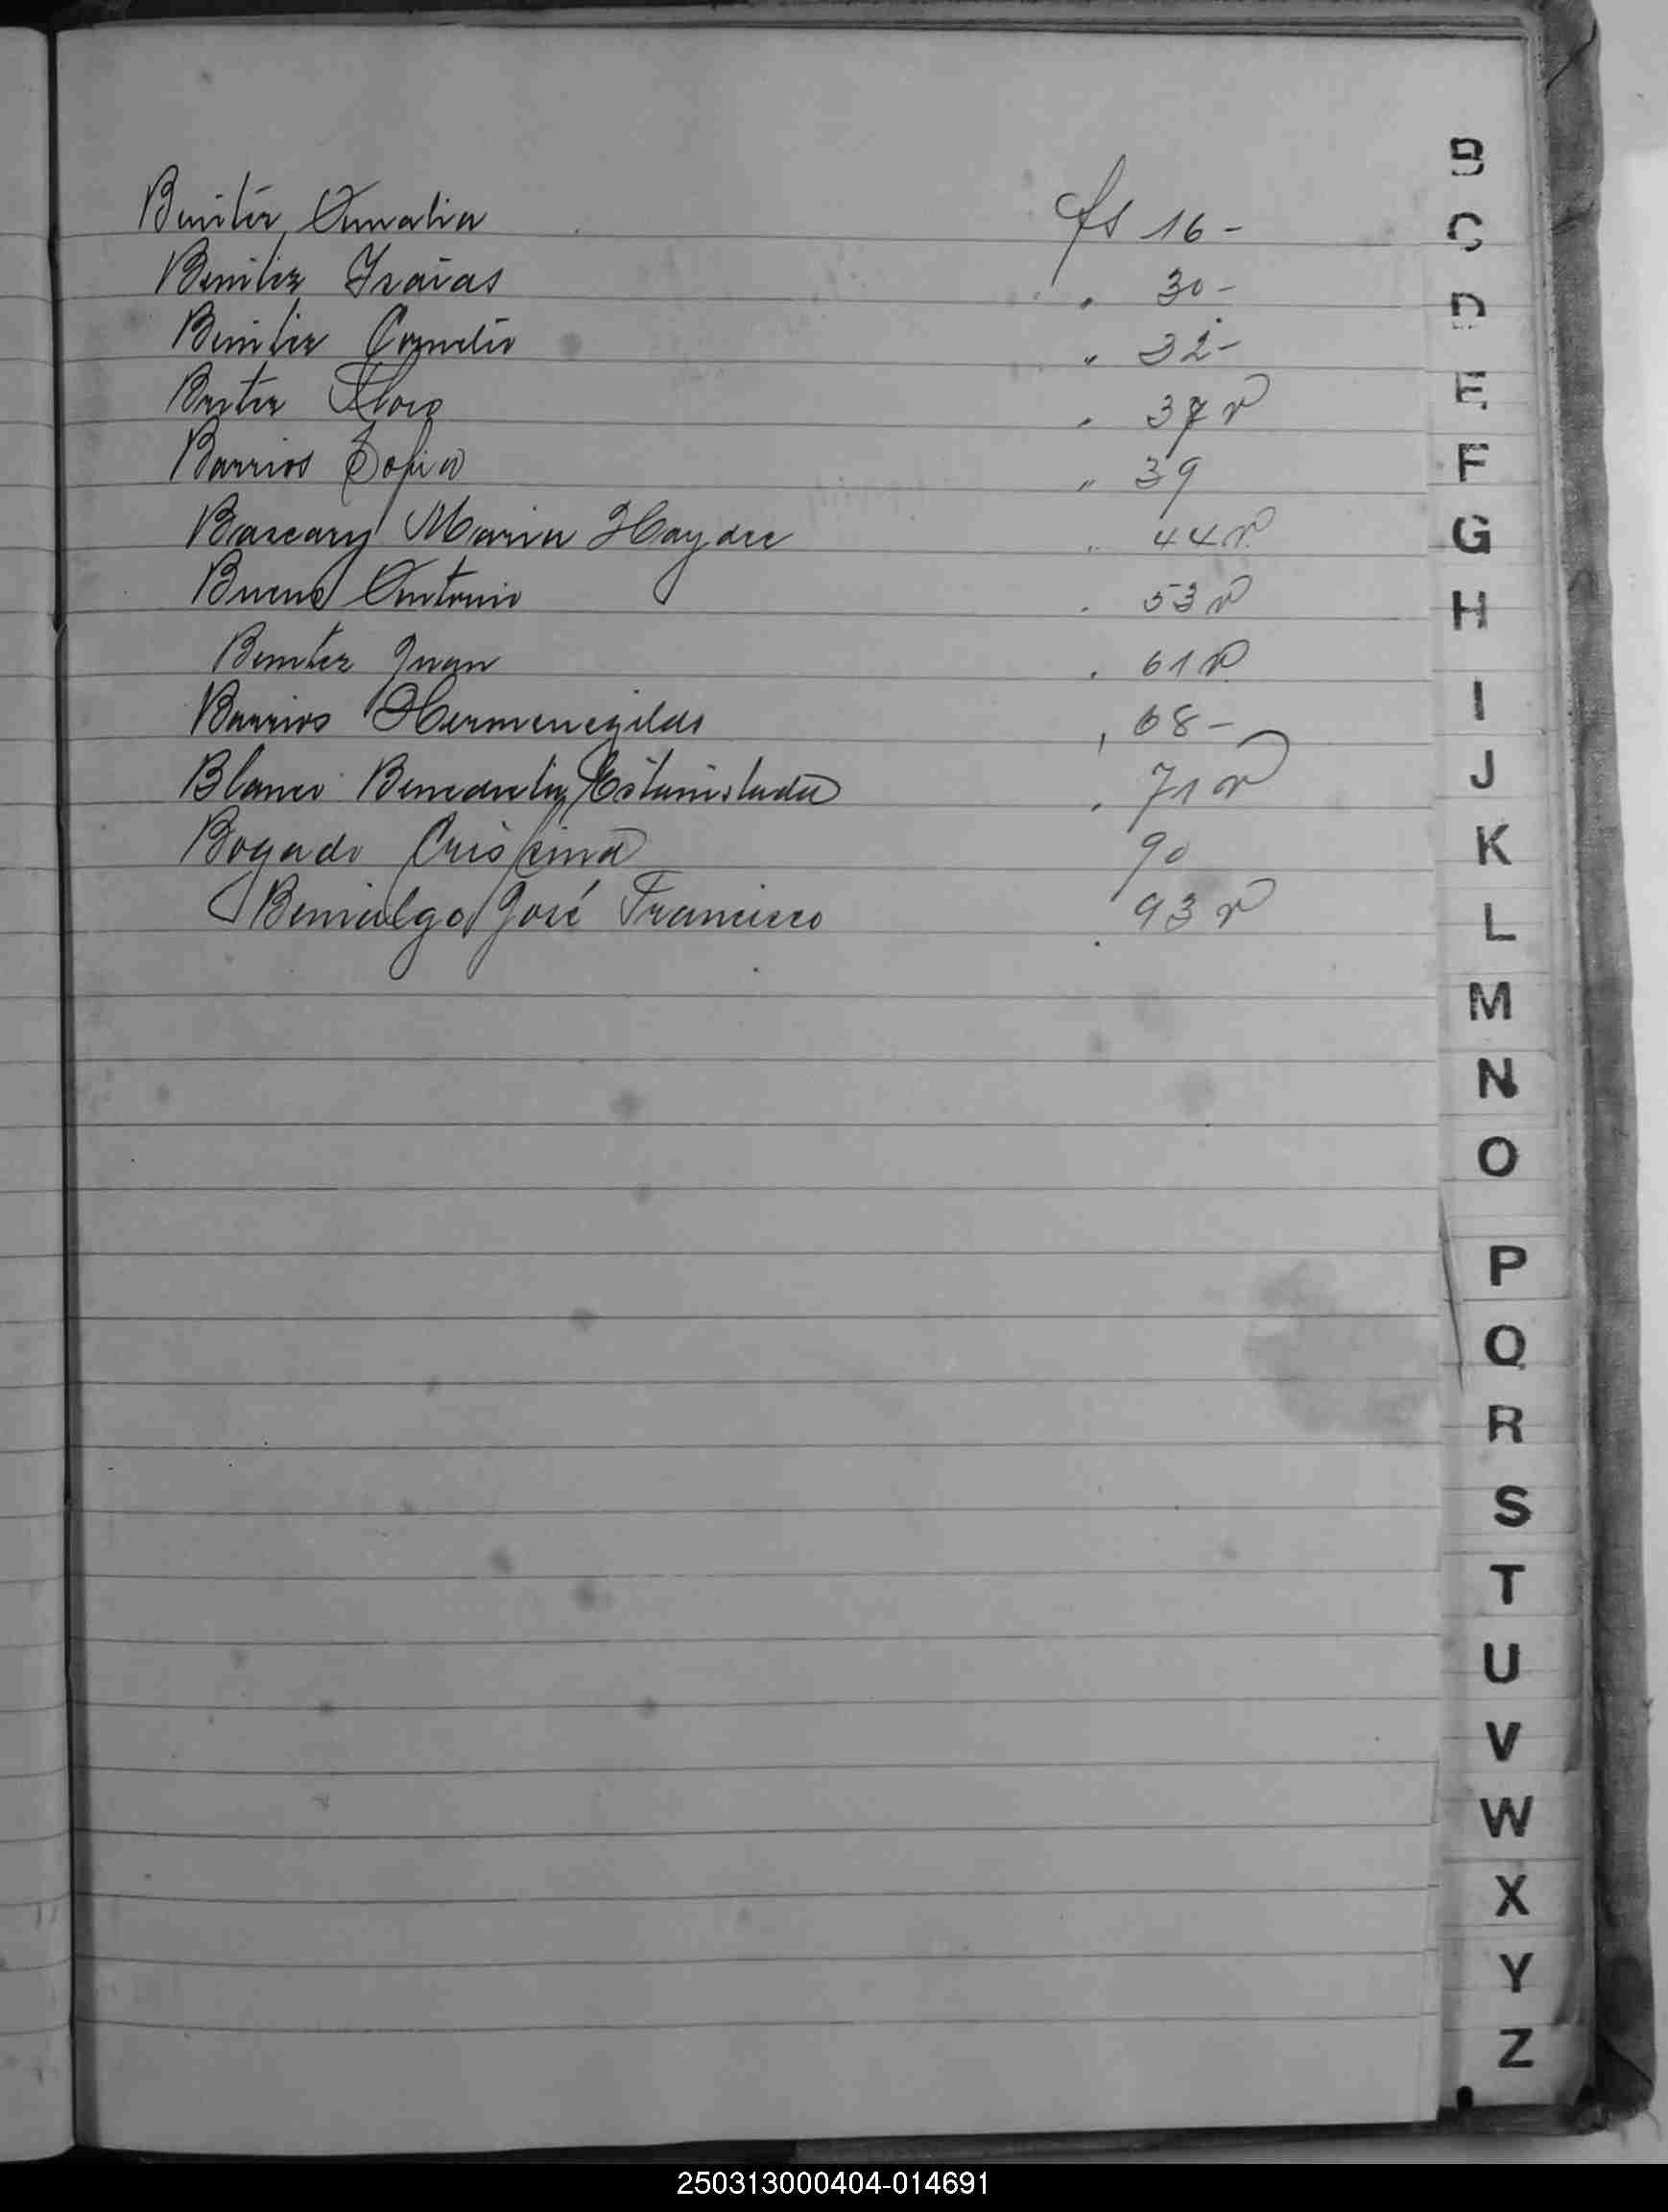 Benitez, Amalia fs 16 -
Benitez Isaías " 30 -
Benitez Cornelio " 32 -
Flora " 37 v
Barrios Sofia " 39
Bascary Maria Haydee " 44 v
Bueno Antonio " 53 v
Benitez Juan " 61 v
Barrios Hermenegildo " 68 -
Blanco Benedicta Estanislada " 71 v
Bogado Crispina 90
Beniulgo José Francisco " 93 v
B
C
D
E
F
G
H
I
J
K
L
M
N
O
P
Q
R
S
T
U
V
W
X
Y
Z
250313000404-014691